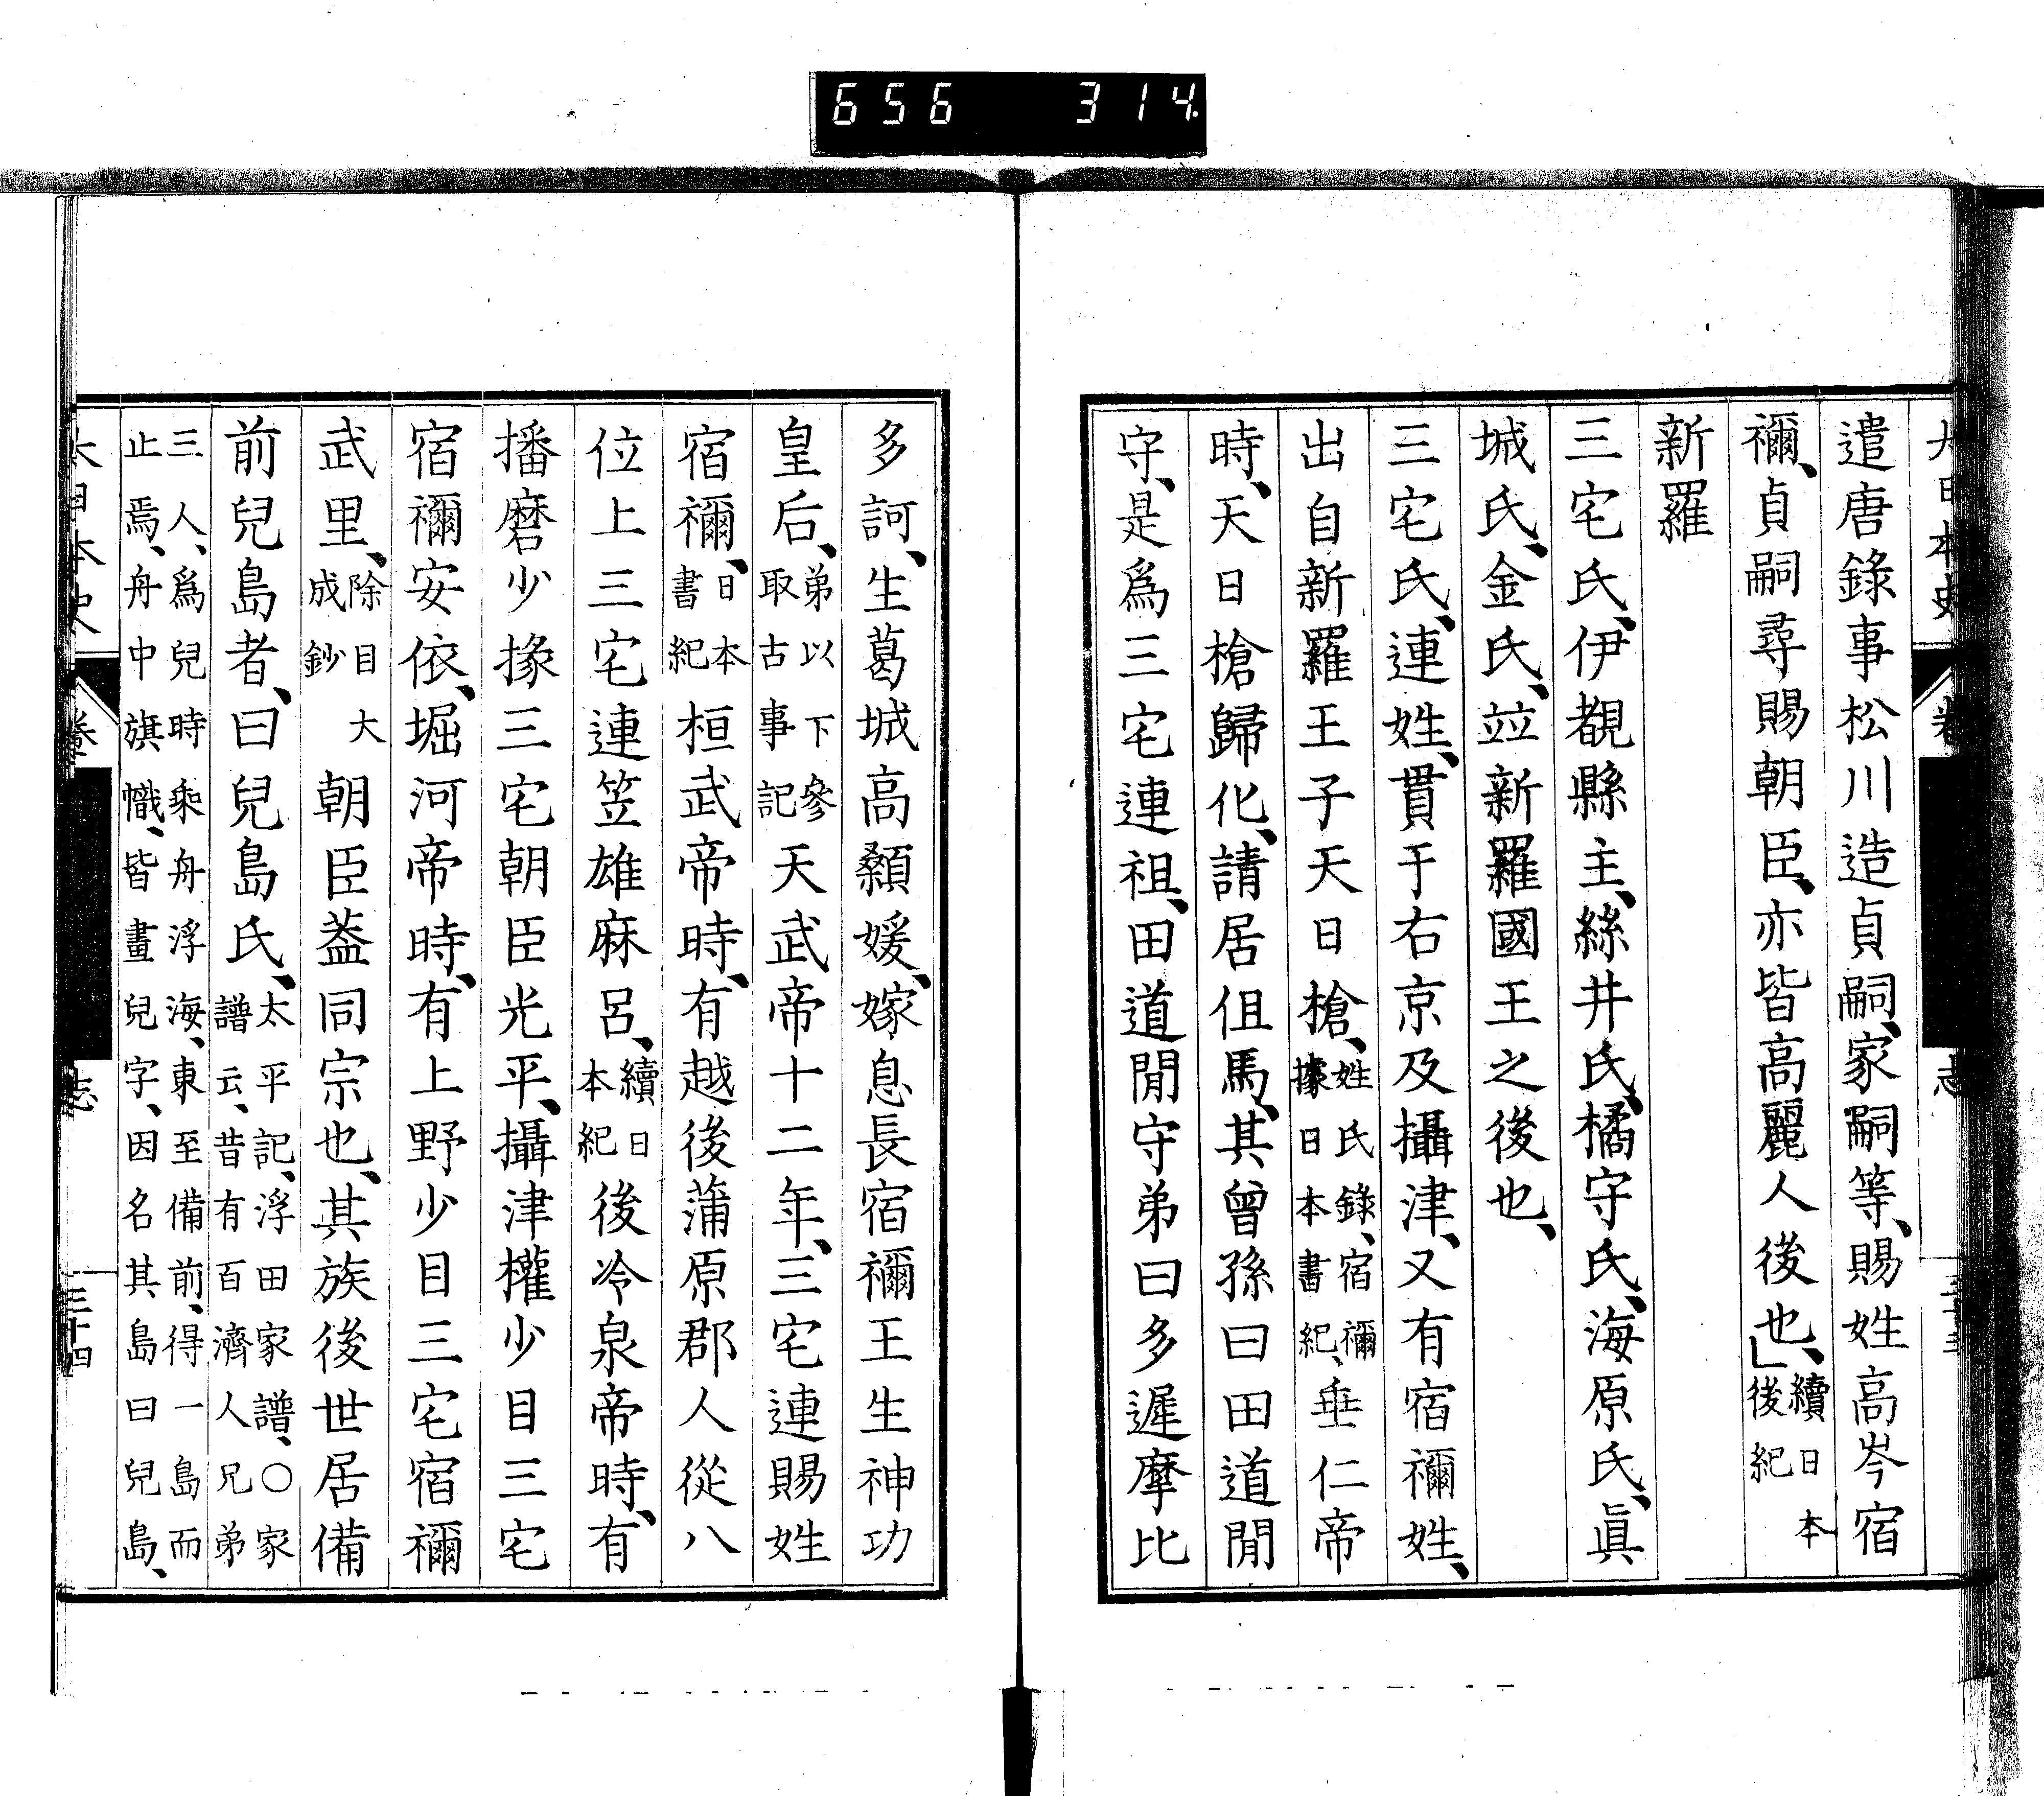 656 314
大日本史 卷 志
遣唐錄事松川造貞嗣、家嗣等、賜姓高岑宿
禰、貞嗣尋賜朝臣、亦皆高麗人後也、」續日本後紀
新羅
三宅氏、伊覩縣主、絲井氏、橘守氏、海原氏、眞
城氏、金氏、竝新羅國王之後也、
三宅氏、連姓、貫于右京及攝津、又有宿禰姓、
出自新羅王子天日槍、姓氏錄、宿禰據日本書紀、垂仁帝
時、天日槍歸化、請居但馬、其曾孫曰田道閒
守、是爲三宅連祖、田道閒守弟曰多遲摩比
多訶、生葛城高顙媛、嫁息長宿禰王生神功
皇后、弟以下參取古事記天武帝十二年、三宅連賜姓
宿禰、日本書紀桓武帝時、有越後蒲原郡人從八
位上三宅連笠雄麻呂、續日本紀後冷泉帝時、有
播磨少掾三宅朝臣光平、攝津權少目三宅
宿禰安依、堀河帝時、有上野少目三宅宿禰
武里、除目大成鈔朝臣葢同宗也、其族後世居備
前兒島者、曰兒島氏、太平記、浮田家譜、○家譜云、昔有百濟人兄弟
三人、爲兒時乘舟浮海、東至備前、得一島而止焉、舟中旗幟、皆畫兒字、因名其島曰兒島、
大日本史 卷 志 三十四